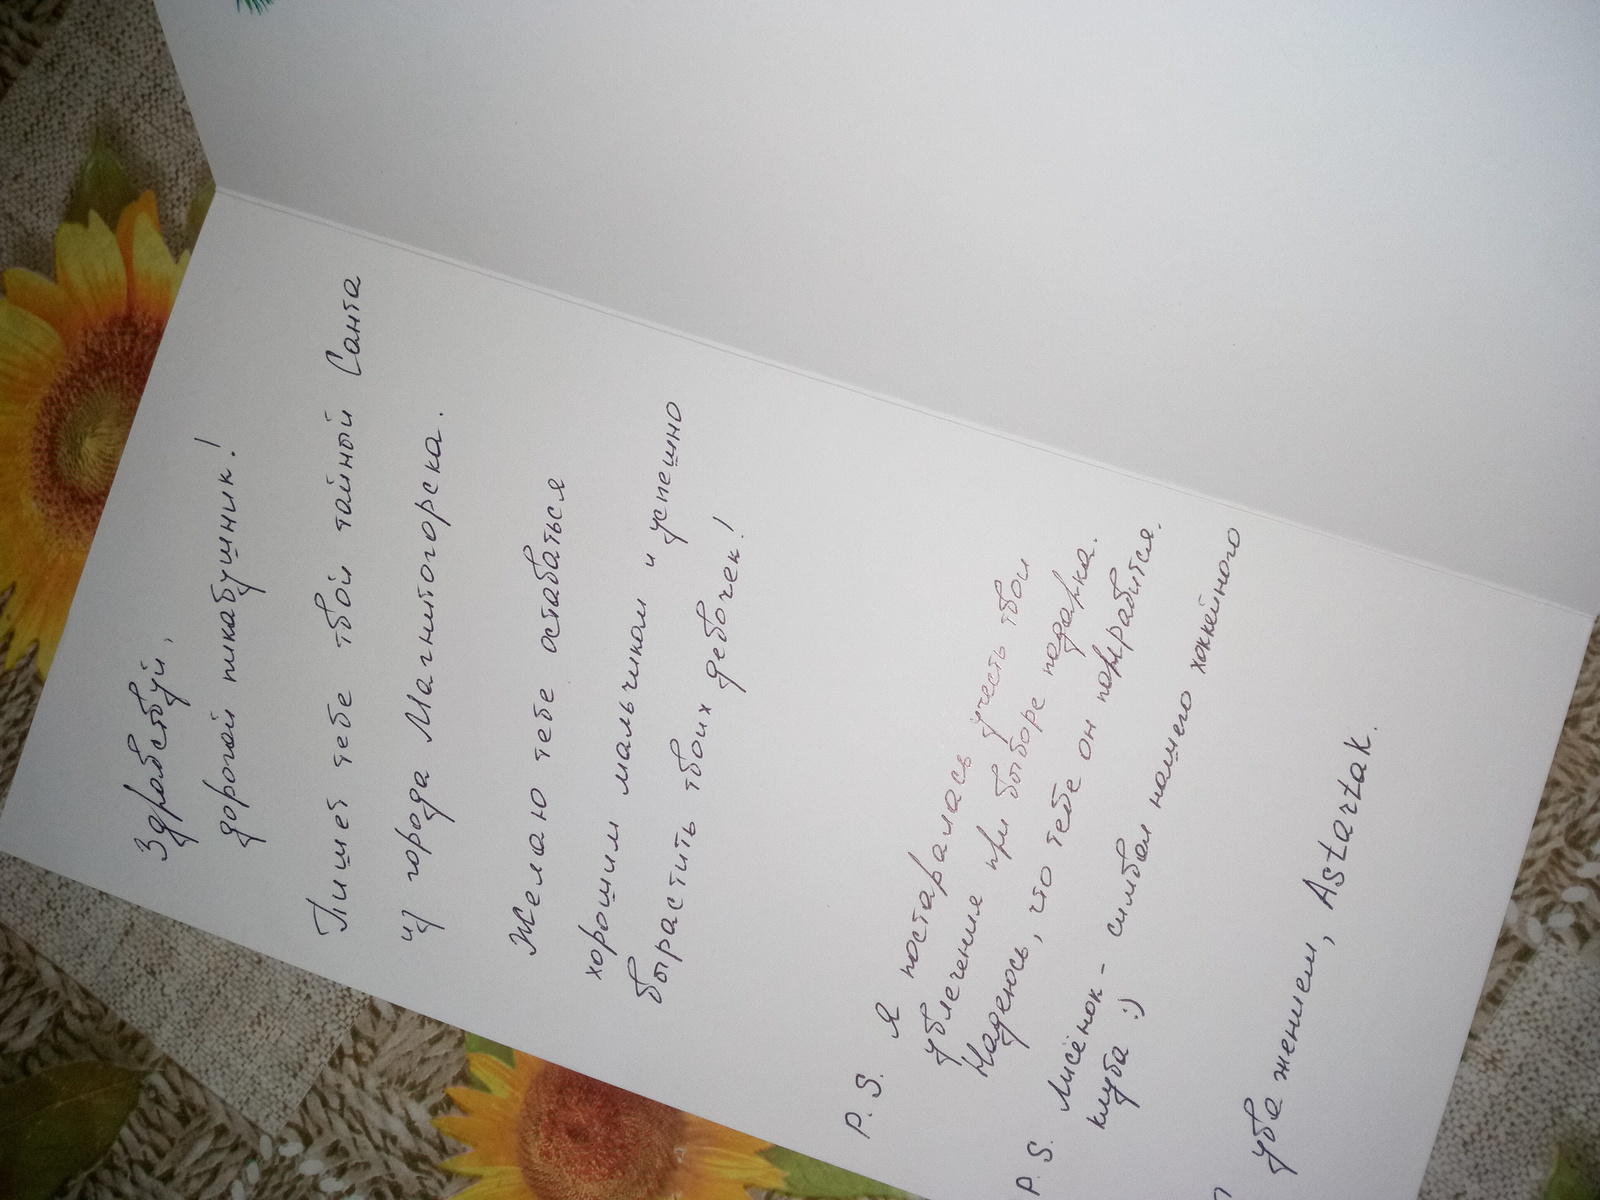 Здравствуй,
дорогой пикабушник!
Пишет тебе твой тайный Санта
из города Магнитогорска.
Желаю тебе оставаться
хорошим мальчиком и успешно
вырастить твоих девочек!
P.S. Я постаралась учесть твои
увлечения при выборе подарка.
Надеюсь, что тебе он понравится.
P.S. Лисёнок - символ нашего хоккейного
клуба :)
уважением, Astartak.